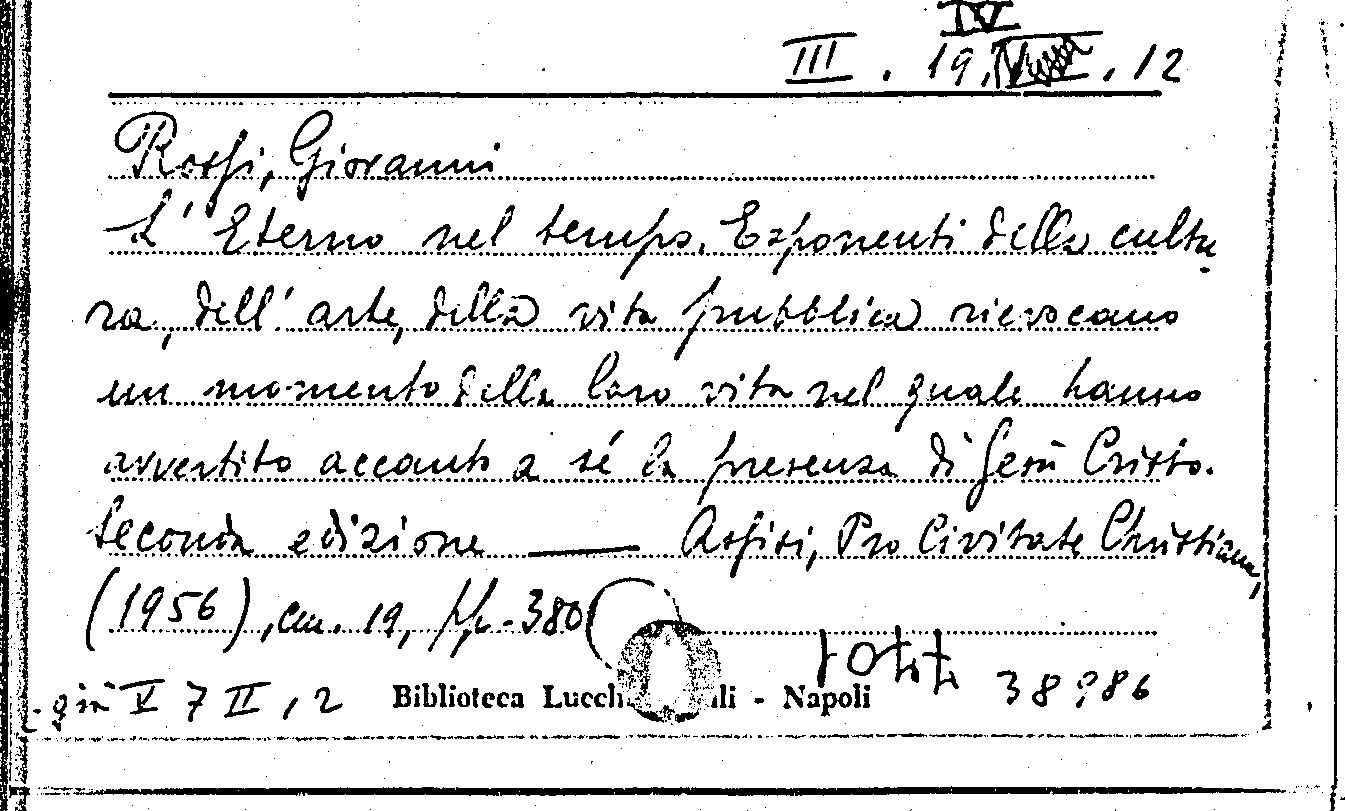 IV
III . 19. . 12
Rossi, Giovanni
L'Eterno nel tempo. Esponenti della cultu
ra, dell'arte, della vita pubblica rievocano
un momento della loro vita nel quale hanno
avvertito accanto a sé la presenza di Gesù Cristo.
Seconda edizione — Assisi, Pro Civitate Christiana,
(1956), cm. 19, pp. 380
già V 7 II, 2 Biblioteca Lucch li - Napoli 38986